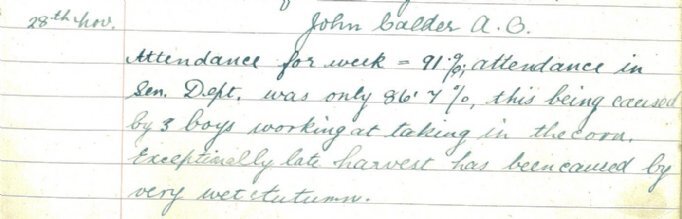 John Calder A.O.
28th Nov.
Attendance for week = 91%, attendance in
Sen. Dept. was only 86·7%, this being caused
by 3 boys working at taking in the corn.
Exceptionally late harvest has been caused by
very wet Autumn.